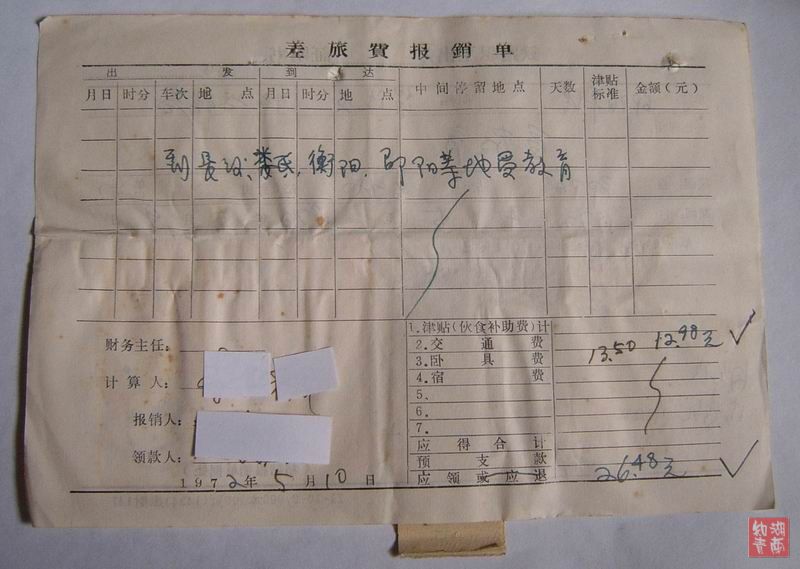 差旅費报銷单
出 发 到 达
月日 时分 车次 地点 月日 时分 地点 中间停留地点 天数 津贴标准 金额(元)
到長沙、娄氏、衡阳、邵阳等地受教育
1.津贴(伙食补助费)计
财务主任:
2.交通费 13.50 12.98元
3.卧具费
计算人:
4.宿费
5.
报销人:
6.
7.
应得合计
领款人:
预支款
应领或应退 26.48元
1972年5月10日
湖南知青